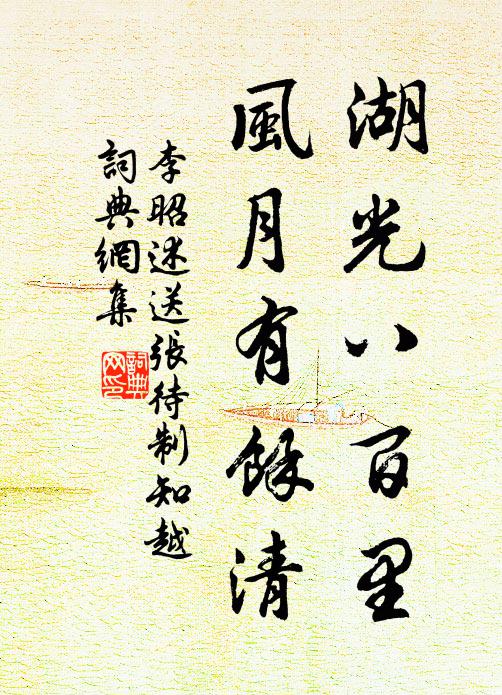 湖光八百里
風月有餘清
李昭述送張待制知越
詞典網集
詞典网印